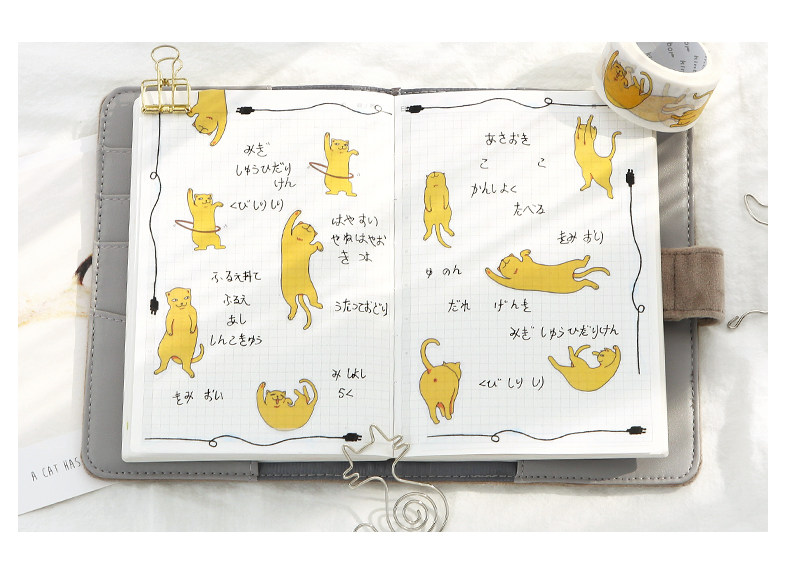 みぎ
しゅうひだり
けん
くびしりしり
はやすい
やねはやお
きつね
ふるえ
あし
しんこきゅう
うたっておどり
きみ おい
みよし
らく
あさおき
こ こ
かんしょく
たべる
きみ おり
ゆ のん
だれ げんを
みぎ しゅうひだりけん
くび しり しり
A CAT HAS